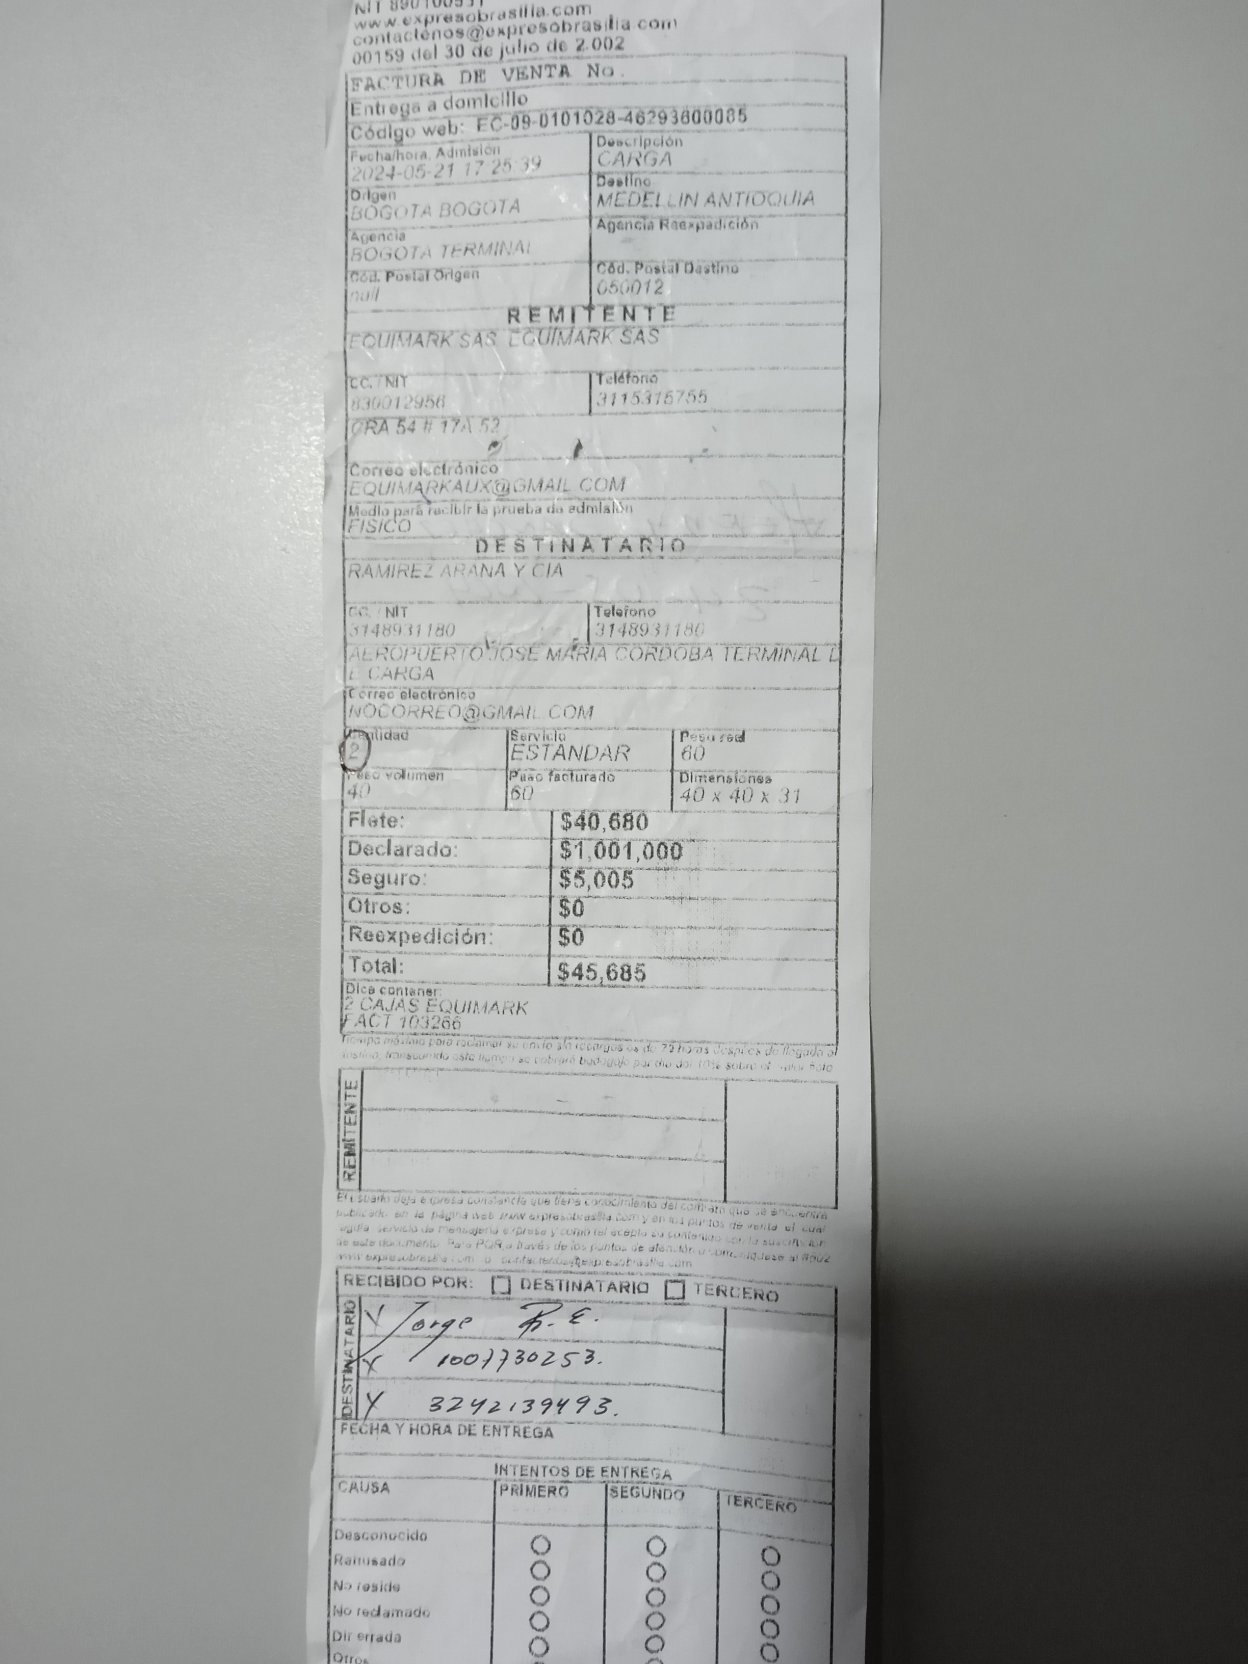 NIT 890100531
www.expresobrasilia.com
contactenos@expresobrasilia.com
00159 del 30 de julio de 2.002
FACTURA DE VENTA No.
Entrega a domicilio
Código web: EC-09-0101028-46293600085
Fecha/hora. Admisión
2024-05-21 17:25:39
Descripción
CARGA
Origen
BOGOTA BOGOTA
Destino
MEDELLIN ANTIOQUIA
Agencia
BOGOTA TERMINAL
Agencia Reexpedición
Cód. Postal Origen
null
Cód. Postal Destino
050012
REMITENTE
EQUIMARK SAS EQUIMARK SAS
CC. / NIT
830012956
Teléfono
3115315755
CRA 54 # 17A 52
Correo electrónico
EQUIMARKAUX@GMAIL.COM
Medio para recibir la prueba de admisión
FISICO
DESTINATARIO
RAMIREZ ARANA Y CIA
CC. / NIT
3148931180
Teléfono
3148931180
AEROPUERTO JOSE MARIA CORDOBA TERMINAL D
E CARGA
Correo electrónico
NOCORREO@GMAIL.COM
Cantidad
2
Servicio
ESTANDAR
Peso real
60
Peso volumen
40
Peso facturado
60
Dimensiones
40 x 40 x 31
Flete: $40,680
Declarado: $1,001,000
Seguro: $5,005
Otros: $0
Reexpedición: $0
Total: $45,685
Dice contener:
2 CAJAS EQUIMARK
FACT 103266
Tiempo máximo para reclamar su envío sin recargos es de 72 horas después de llegada al
destino, transcurrido este tiempo se cobrará bodegaje por día del 10% sobre el valor flete
REMITENTE
El usuario deja expresa constancia que tiene conocimiento del contrato que se encuentra
publicado en la página web www.expresobrasilia.com y en los puntos de venta, el cual
servicio de mensajería expresa y como tal acepta su contenido con la suscripción
de este documento. Para PQR a través de los puntos de atención o comuníquese al #602
www.expresobrasilia.com o contactenos@expresobrasilia.com
RECIBIDO POR: DESTINATARIO TERCERO
DESTINATARIO
X Jorge R. E.
X 1007730253.
X 3242139493.
FECHA Y HORA DE ENTREGA
INTENTOS DE ENTREGA
CAUSA PRIMERO SEGUNDO TERCERO
Desconocido
Rehusado
No reside
No reclamado
Dir errada
Otros